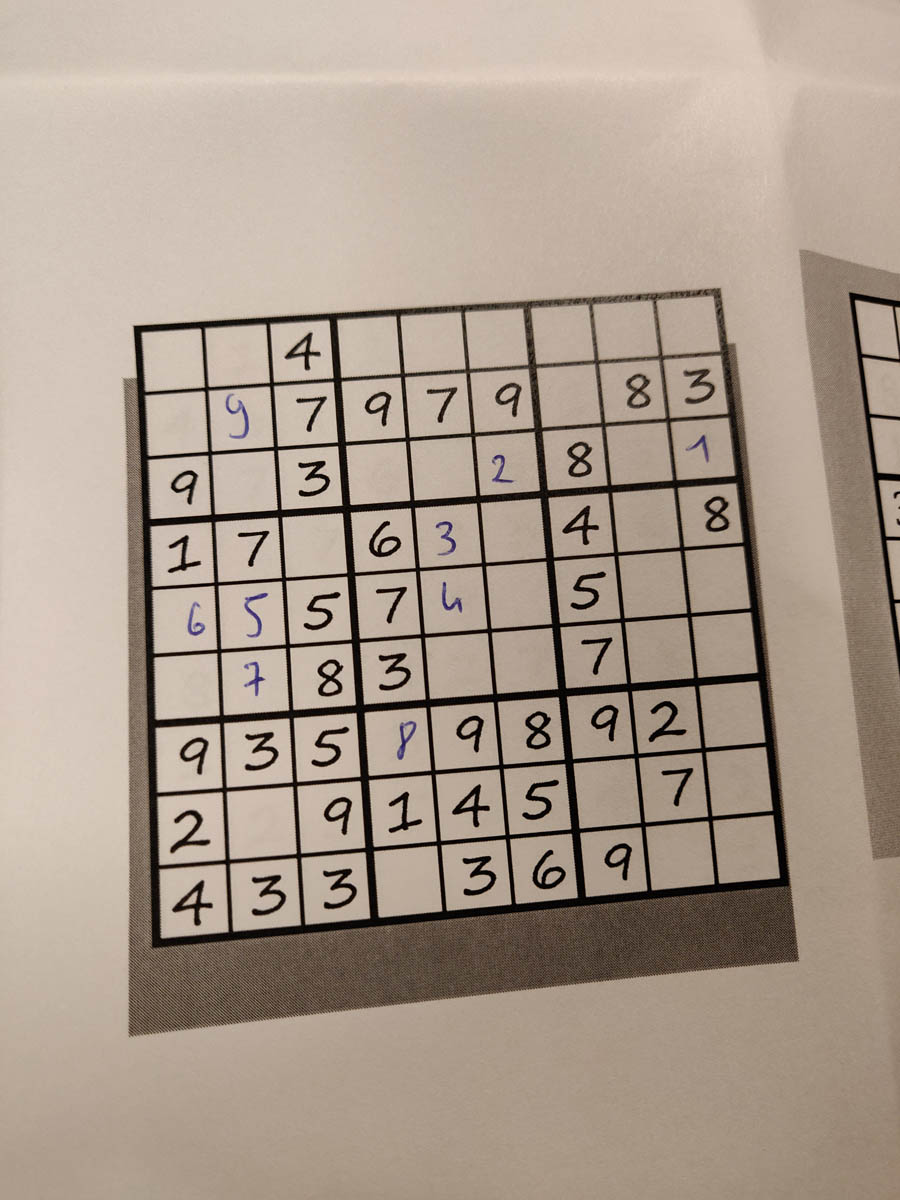 4
9 7 9 7 9 8 3
9 3 2 8 1
1 7 6 3 4 8
6 5 5 7 4 5
7 8 3 7
9 3 5 8 9 8 9 2
2 9 1 4 5 7
4 3 3 3 6 9